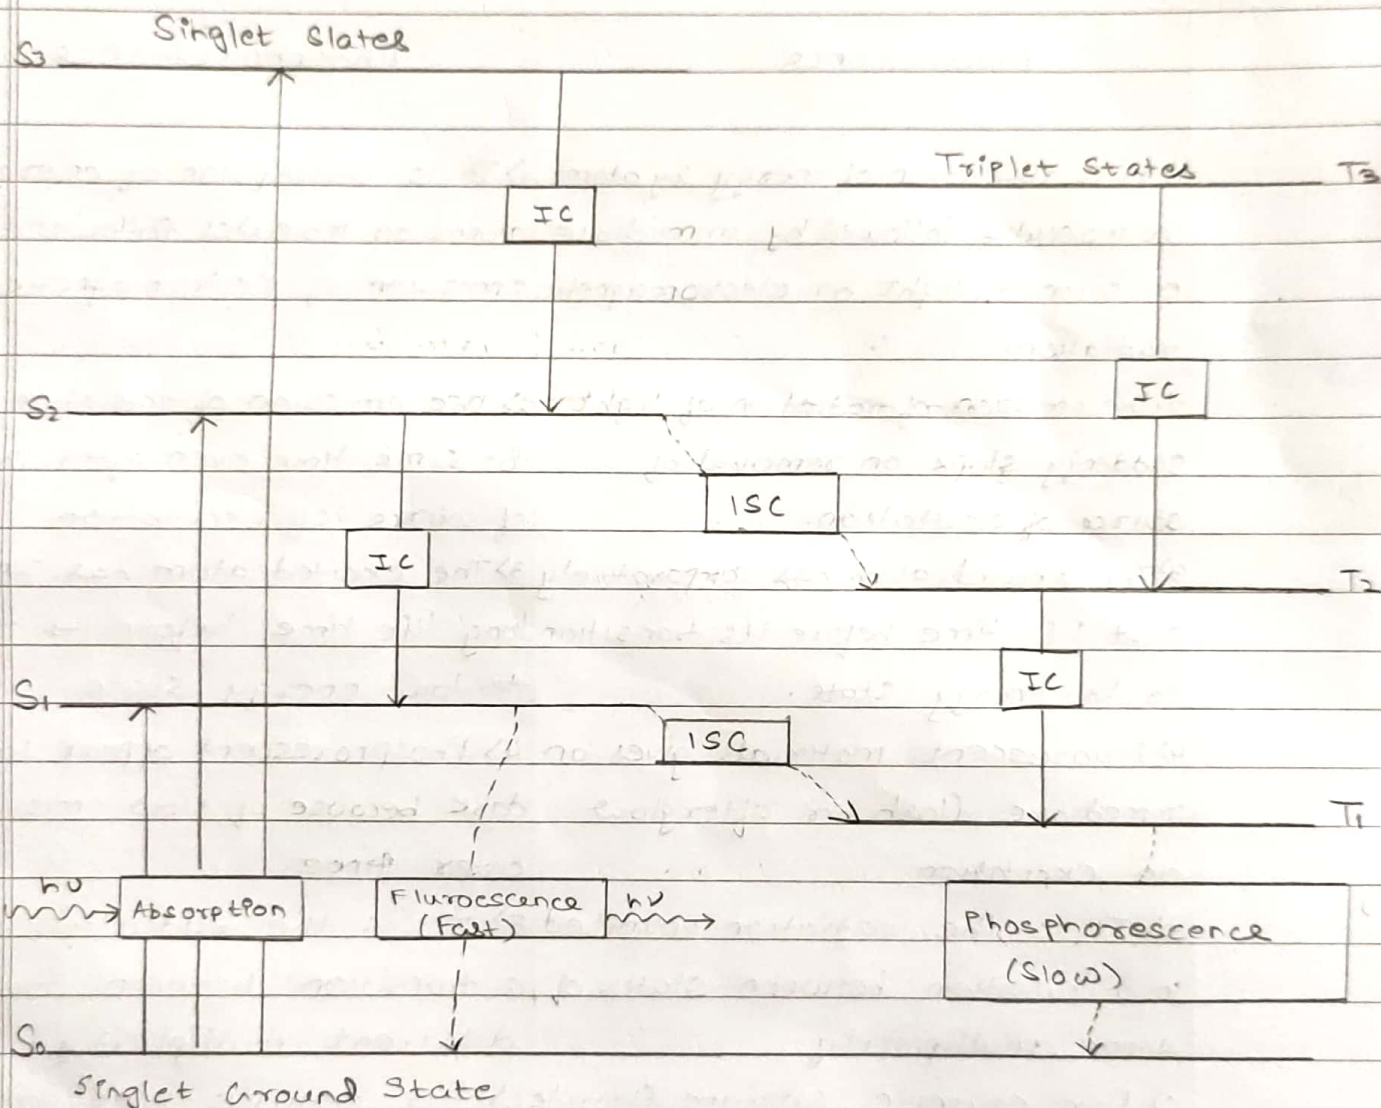 Singlet Slates
S3
Triplet States
T3
IC
IC
S2
ISC
IC
T2
IC
S1
ISC
T1
hν
Absorption
Fluroescence
(Fast)
hν
Phosphorescence
(Slow)
S0
Singlet Ground State